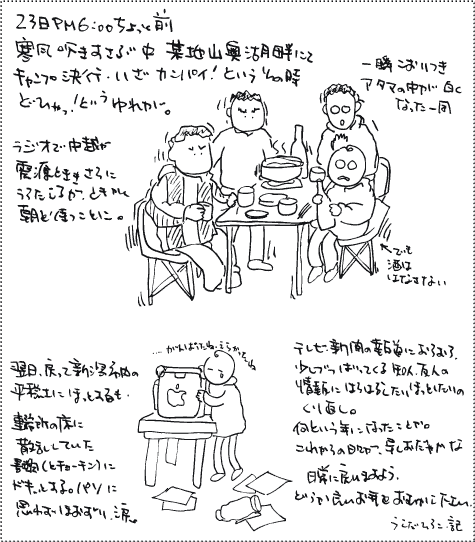 23日PM6:00ちょっと前
寒風吹きすさぶ中 某地山奥湖畔にて
キャンプ決行・いざ カンパイ！という その時
どひゃっ！という ゆれかた。
一瞬こおりつき
アタマの中が 白く
なった一同
ラジオで中越が
震源ときき さらに
うろたえるが、ともかく
朝を待つことに。
←でも
酒は
はなさない
…がんばったね、えらかったね
翌日、戻って新潟市内の
平穏さに ほっとするも、
の床に
散乱していた
(とチョーキン)に
ドキッとする。パソに
思わずほおずり。涙
テレビ・新聞の報道に おろおろ、
少しづつ はいってくる 知人、友人の
情報に はらはらしたり ほっとしたりの
くり返し。
何という年になったことか。
これからの日々が、早く おだやかな
日常に 戻りますよう、
どうか良いお年を おむかえください。
記